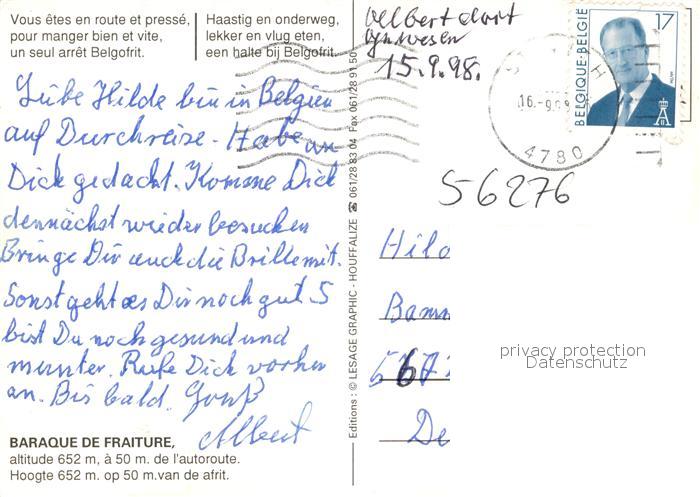 Vous êtes en route et pressé,
pour manger bien et vite,
un seul arrêt Belgofrit.
Haastig en onderweg,
lekker en vlug eten,
een halte bij Belgofrit.
15.9.98.
BELGIQUE·BELGIË
17
16.-9.98
4780
56276
Liebe Hilde bin in Belgien
auf Durchreise. Habe an
Dich gedacht. Komme Dich
demnächst wieder besuchen
Bringe Dir auch die Brille mit.
Sonst geht es Dir noch gut
bist Du noch gesund und
munter. Rufe Dich vorher
an. Bis bald. Gruß
Albert
Hil
Bam
De
privacy protection
Datenschutz
Editions : © LESAGE GRAPHIC - HOUFFALIZE ☎ 061/28 83 04 Fax 061/28 91 50
BARAQUE DE FRAITURE,
altitude 652 m, à 50 m. de l'autoroute.
Hoogte 652 m. op 50 m.van de afrit.